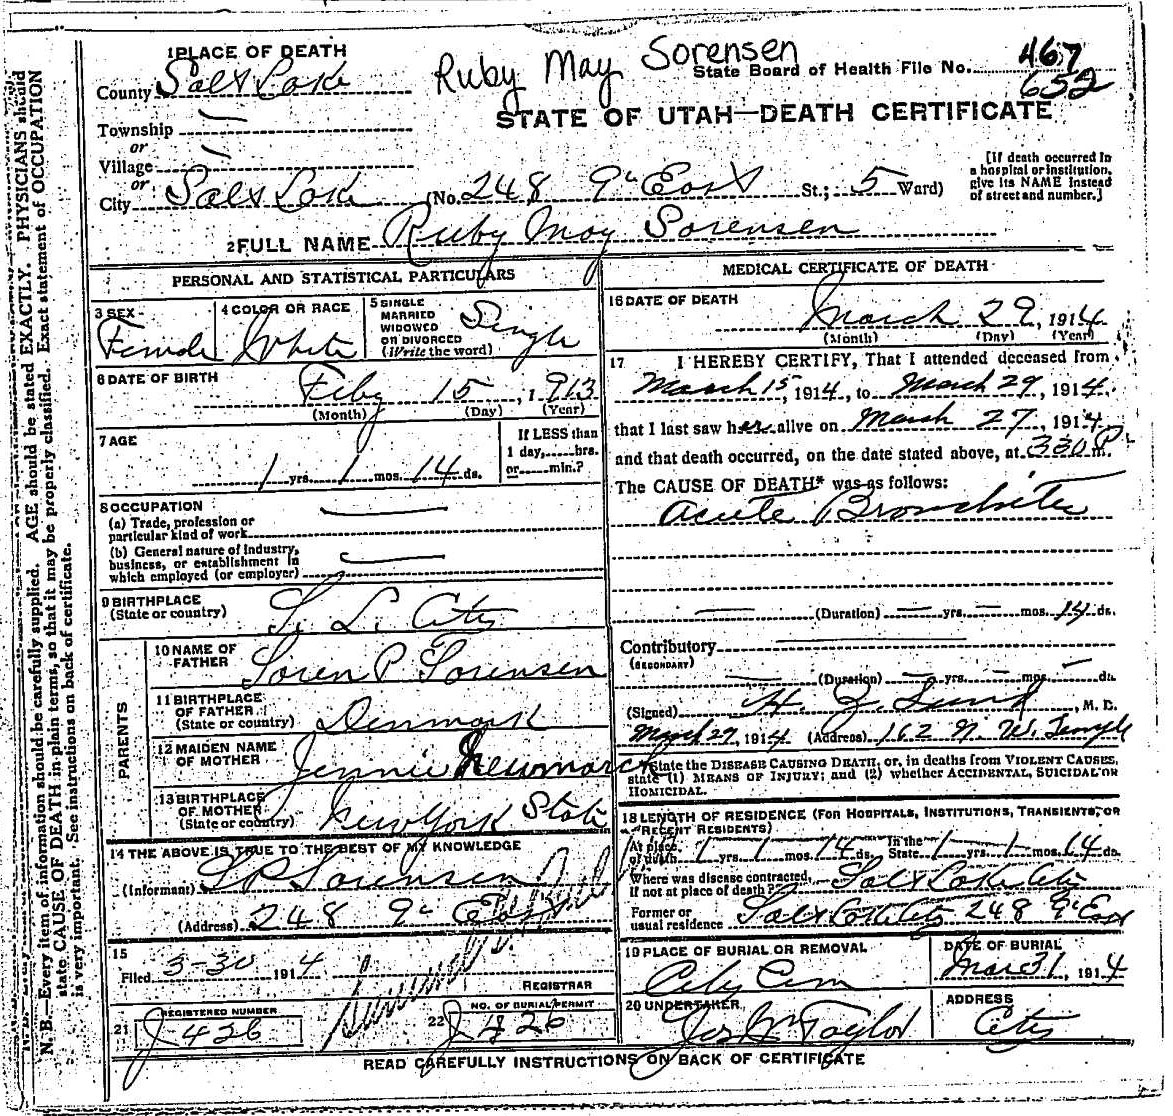 N. B.—Every item of information should be carefully supplied. AGE should be stated EXACTLY. PHYSICIANS should
state CAUSE OF DEATH in plain terms, so that it may be properly classified. Exact statement of OCCUPATION
is very important. See instructions on back of certificate.
Ruby May Sorensen
1 PLACE OF DEATH
County Salt Lake
State Board of Health File No. 467
652
STATE OF UTAH—DEATH CERTIFICATE
Township —
or
Village —
or
City Salt Lake (No. 248 9th East St.; 5 Ward)
[If death occurred in
a hospital or institution,
give its NAME instead
of street and number.]
2 FULL NAME Ruby May Sorensen
PERSONAL AND STATISTICAL PARTICULARS
3 SEX
Female
4 COLOR OR RACE
White
5 SINGLE
MARRIED
WIDOWED
OR DIVORCED
(Write the word)
Single
6 DATE OF BIRTH
Feby 15, 1913
(Month) (Day) (Year)
7 AGE
1 yrs. 1 mos. 14 ds.
If LESS than
1 day,......hrs.
or......min.?
8 OCCUPATION
(a) Trade, profession or
particular kind of work —
(b) General nature of industry,
business, or establishment in
which employed (or employer) —
9 BIRTHPLACE
(State or country) S. L. City
PARENTS
10 NAME OF
FATHER Soren P Sorensen
11 BIRTHPLACE
OF FATHER
(State or country) Denmark
12 MAIDEN NAME
OF MOTHER Jennie Newmarch
13 BIRTHPLACE
OF MOTHER
(State or country) New York State
14 THE ABOVE IS TRUE TO THE BEST OF MY KNOWLEDGE
(Informant) S P Sorensen
(Address) 248 9th East
15
Filed 3-30, 1914
REGISTRAR
21 REGISTERED NUMBER
J-426
22 NO. OF BURIAL PERMIT
J 426
MEDICAL CERTIFICATE OF DEATH
16 DATE OF DEATH
March 29, 1914
(Month) (Day) (Year)
17 I HEREBY CERTIFY, That I attended deceased from
March 15, 1914, to March 29, 1914.
that I last saw her alive on March 27, 1914
and that death occurred, on the date stated above, at 330 P m.
The CAUSE OF DEATH* was as follows:
Acute Bronchitis
— (Duration) — yrs. — mos. 14 ds.
Contributory —
(SECONDARY)
— (Duration) — yrs. — mos. — ds.
(Signed) H. Z. Lund, M. D.
March 29, 1914 (Address) 162 N. W. Temple
*State the DISEASE CAUSING DEATH, or, in deaths from VIOLENT CAUSES,
state (1) MEANS OF INJURY; and (2) whether ACCIDENTAL, SUICIDAL OR
HOMICIDAL.
18 LENGTH OF RESIDENCE (FOR HOSPITALS, INSTITUTIONS, TRANSIENTS, OR
RECENT RESIDENTS)
At place
of death 1 yrs. 1 mos. 14 ds. In the
State 1 yrs. 1 mos. 14 ds.
Where was disease contracted,
if not at place of death? Salt Lake City
Former or
usual residence Salt Lake City 248 9th East
19 PLACE OF BURIAL OR REMOVAL
City Cem
DATE OF BURIAL
Mar 31, 1914
20 UNDERTAKER
Jos Wm Taylor
ADDRESS
City
READ CAREFULLY INSTRUCTIONS ON BACK OF CERTIFICATE